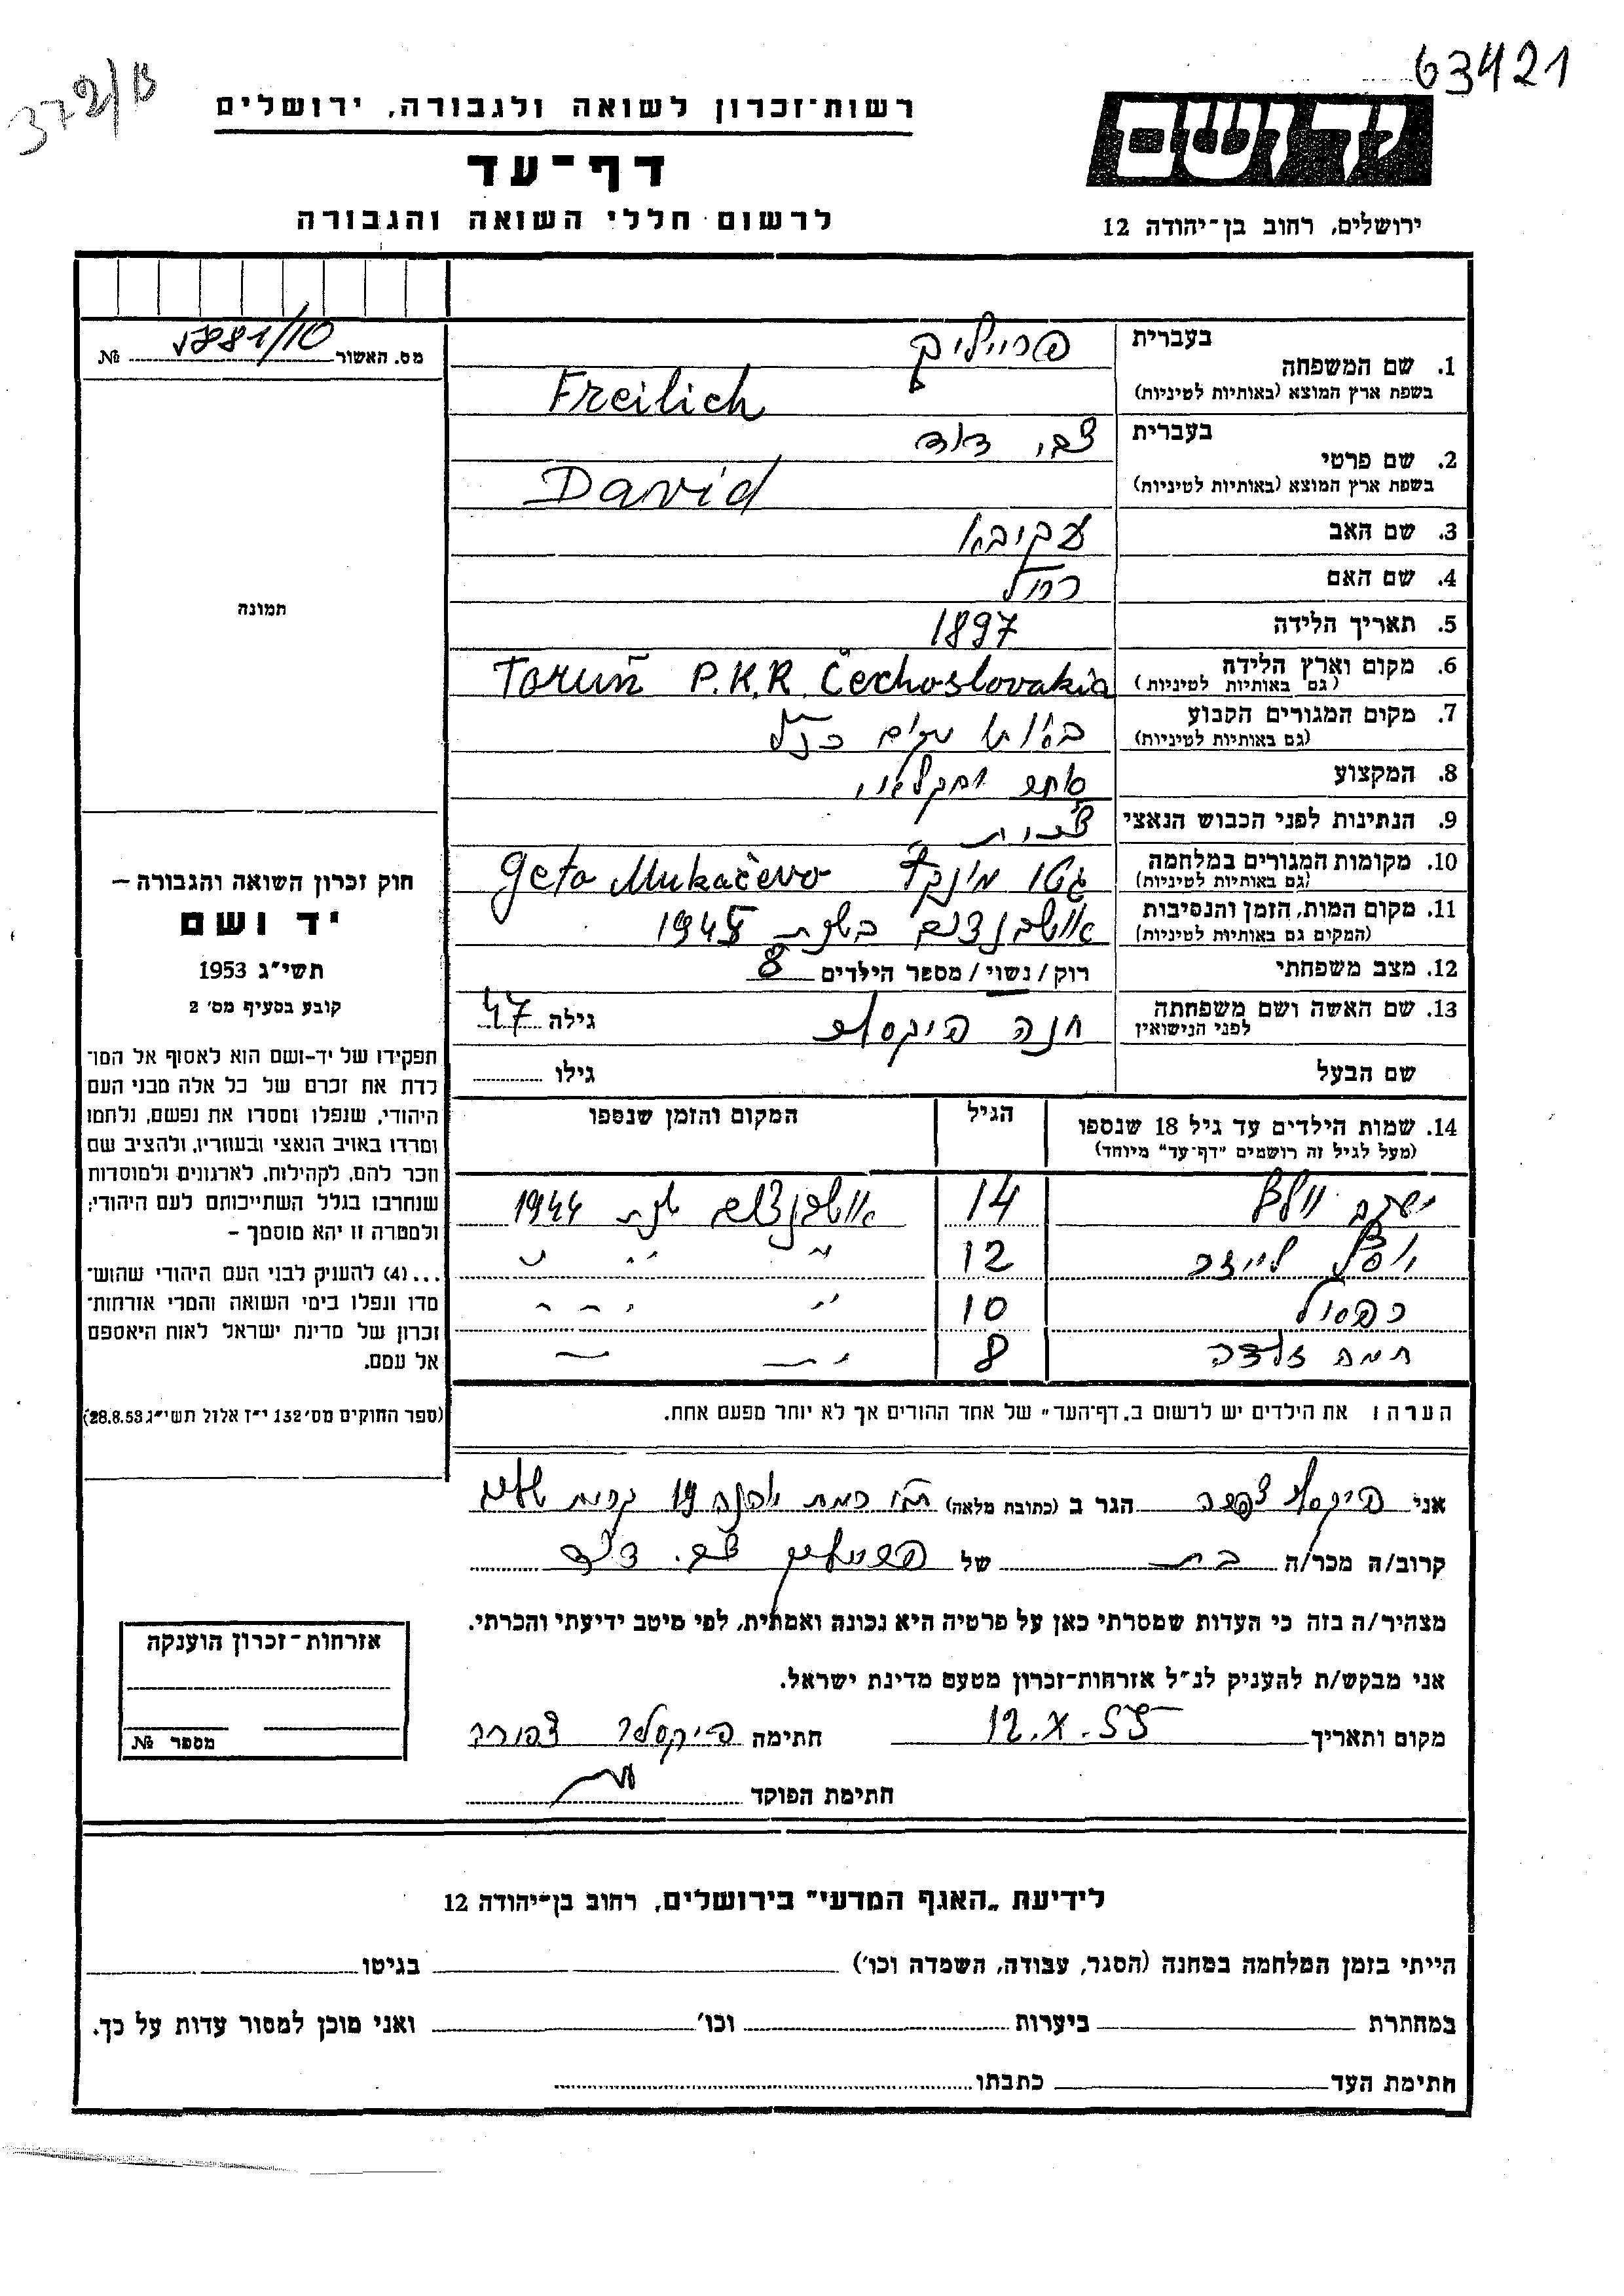 63421
372/13
רשות־זכרון לשואה ולגבורה, ירושלים
יד ושם
דף־עד
לרשום חללי השואה והגבורה
ירושלים, רחוב בן־יהודה 12
מס. האשור №
1. שם המשפחה
בעברית פרייליך
בשפת ארץ המוצא (באותיות לטיניות) Freilich
2. שם פרטי
בעברית צבי דוד
בשפת ארץ המוצא (באותיות לטיניות) David
3. שם האב עקיבא
4. שם האם רחל
5. תאריך הלידה 1897
6. מקום וארץ הלידה
(גם באותיות לטיניות) Toruň P.K.R. Čechoslovakia
7. מקום המגורים הקבוע
(גם באותיות לטיניות) כנ"ל
8. המקצוע סוחר וחקלאי
9. הנתינות לפני הכבוש הנאצי צ'כית
10. מקומות המגורים במלחמה
(גם באותיות לטיניות) גטו Geto Mukačevo
11. מקום המות, הזמן והנסיבות
(המקום גם באותיות לטיניות) אושבנצים בשנת
12. מצב משפחתי רוק / נשוי / מספר הילדים 8
13. שם האשה ושם משפחתה
לפני הנישואין חנה פיקסלר גילה 47
שם הבעל גילו
14. שמות הילדים עד גיל 18 שנספו
(מעל לגיל זה רושמים "דף־עד" מיוחד)
הגיל
המקום והזמן שנספו
יעקב וולף 14 אושבנצים שנת 1944
לייזר 12 " " "
10 " " "
חמה זלדה 8 " " "
הערה: את הילדים יש לרשום ב„דף־העד" של אחד ההורים אך לא יותר מפעם אחת.
אני פיקסלר צפורה הגר ב (כתובת מלאה) 19
קרוב/ה מכר/ה בת של פרייליך צבי דוד
מצהיר/ה בזה כי העדות שמסרתי כאן על פרטיה היא נכונה ואמתית, לפי מיטב ידיעתי והכרתי.
אני מבקש/ת להעניק לנ"ל אזרחות־זכרון מטעם מדינת ישראל.
מקום ותאריך 12.X.55 חתימה פיקסלר צפורה
חתימת הפוקד
תמונה
חוק זכרון השואה והגבורה –
יד ושם
תשי"ג 1953
קובע בסעיף מס' 2
תפקידו של יד-ושם הוא לאסוף אל המו־
לדת את זכרם של כל אלה מבני העם
היהודי, שנפלו ומסרו את נפשם, נלחמו
ומרדו באויב הנאצי ובעוזריו, ולהציב שם
וזכר להם, לקהילות, לארגונים ולמוסדות
שנחרבו בגלל השתייכותם לעם היהודי;
ולמטרה זו יהא מוסמך –
...(4) להעניק לבני העם היהודי שהוש־
מדו ונפלו בימי השואה והמרי אזרחות־
זכרון של מדינת ישראל לאות היאספם
אל עמם.
(ספר החוקים מס' 132 י"ז אלול תשי"ג 28.8.53)
אזרחות־זכרון הוענקה
מספר №
לידיעת „האגף המדעי" בירושלים, רחוב בן־יהודה 12
הייתי בזמן המלחמה במחנה (הסגר, עבודה, השמדה וכו') בגיטו
במחתרת ביערות וכו' ואני מוכן למסור עדות על כך.
חתימת העד כתבתו